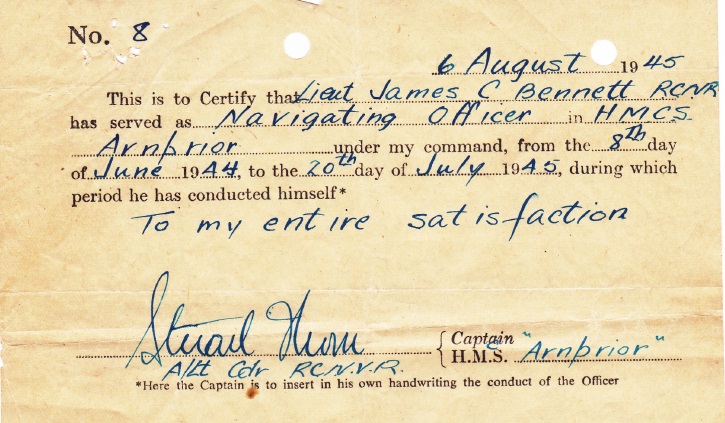 No. 8
6 August 1945
This is to Certify that Lieut James C Bennett RCNR
has served as Navigating Officer in HMCS
Arnprior under my command, from the 8th day
of June 1944, to the 20th day of July 1945, during which
period he has conducted himself*
To my entire satisfaction
Stuart
Captain
A/Lt Cdr R.C.N.V.R. H.M.C.S. "Arnprior"
*Here the Captain is to insert in his own handwriting the conduct of the Officer